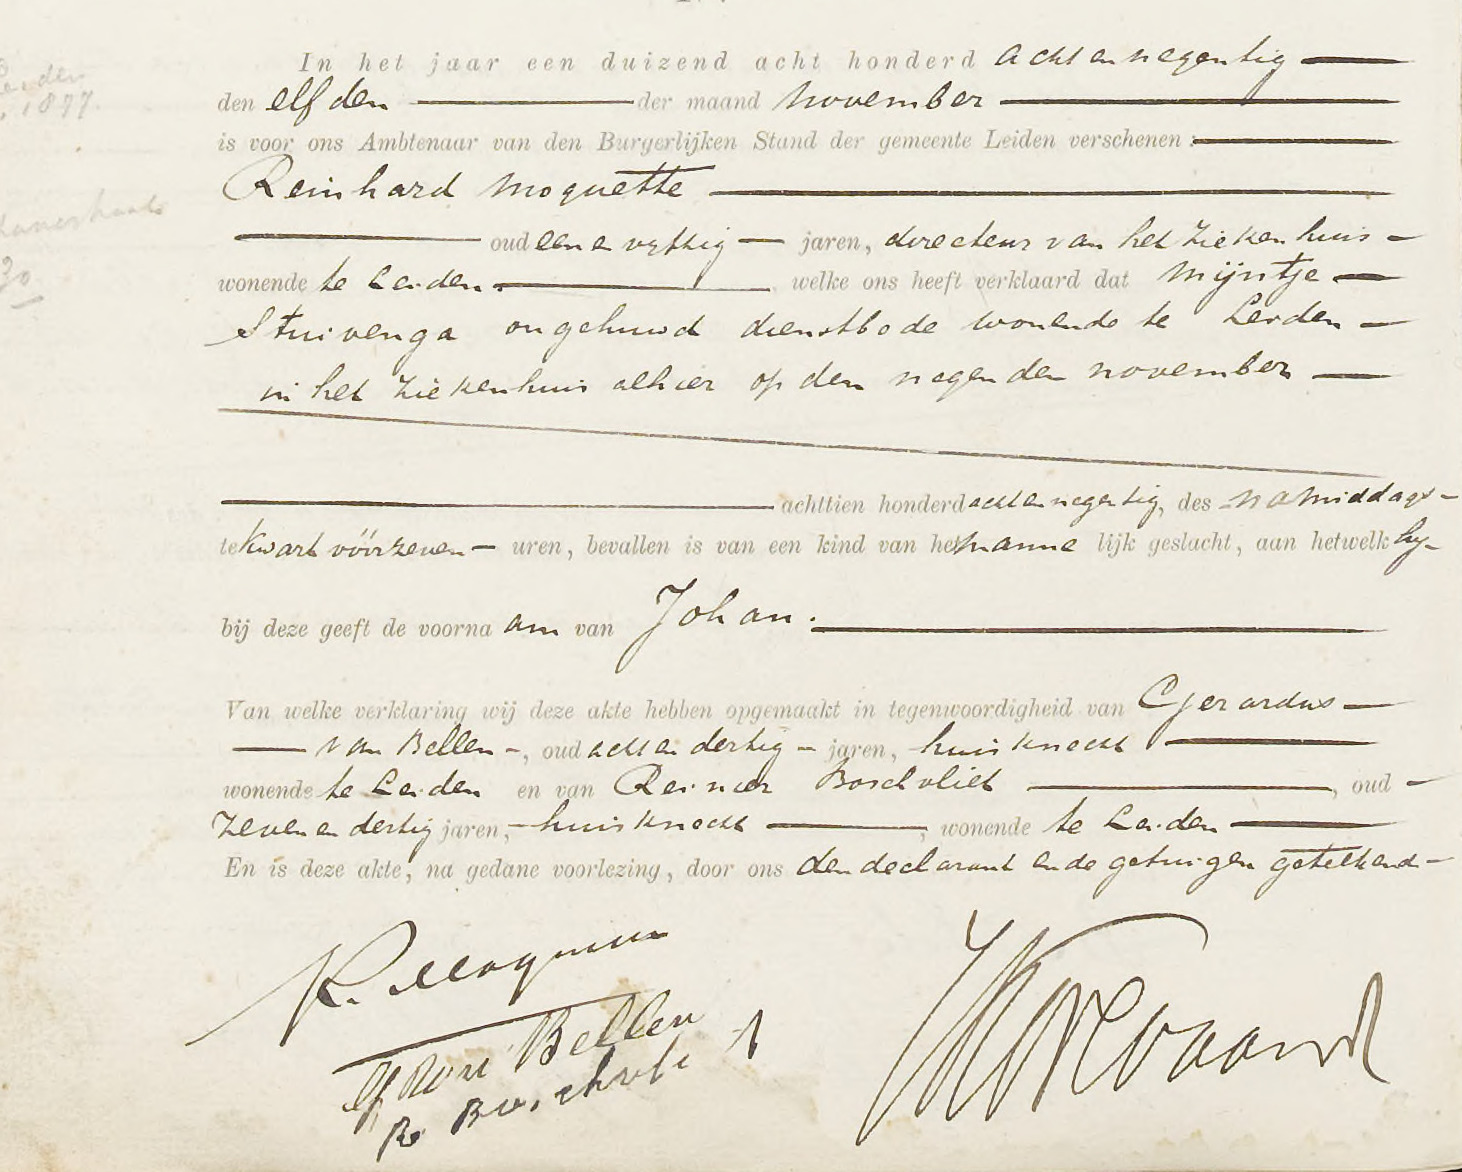 In het jaar een duizend acht honderd acht en negentig
den elfden der maand November
is voor ons Ambtenaar van den Burgerlijken Stand der gemeente Leiden verschenen:
Reinhard Moquette
oud een en vijftig jaren, directeur van het Ziekenhuis
wonende te Leiden welke ons heeft verklaard dat Mijntje
Stuivenga ongehuwd dienstbode wonende te Leiden
in het Ziekenhuis alhier op den negenden november
achttien honderd acht en negentig, des namiddags
te kwart vóór zeven uren, bevallen is van een kind van het manne lijk geslacht, aan hetwelk hy
bij deze geeft de voorna am van Johan.
Van welke verklaring wij deze akte hebben opgemaakt in tegenwoordigheid van Gerardus
van Bellen, oud acht en dertig jaren, huisknecht
wonende te Leiden en van Reinier Boschvliet, oud
zeven en dertig jaren, huisknecht, wonende te Leiden
En is deze akte, na gedane voorlezing, door ons den declarant en de getuigen geteekend
R. Moquette
G van Bellen
Leiden
1877.
30